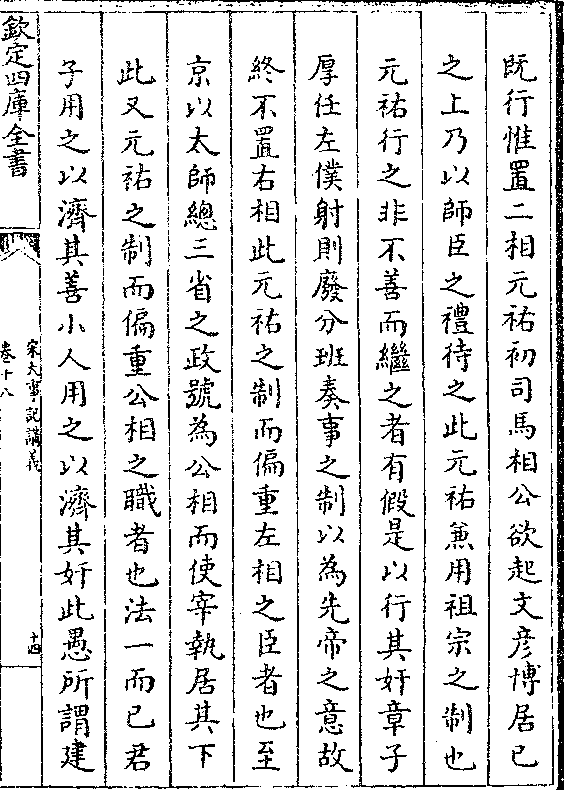 既行惟置二相元祐初司馬相公欲起文彦博居已
之上乃以師臣之禮待之此元祐兼用祖宗之制也
元祐行之非不善而繼之者有假是以行其奸章子
厚任左僕射則廢分班奏事之制以為先帝之意故
終不置右相此元祐之制而偏重左相之臣者也至
京以太師總三省之政號為公相而使宰執居其下
此又元祐之制而偏重公相之職者也法一而已君
子用之以濟其善小人用之以濟其奸此愚所謂建
欽定四庫全書
宋大事記講義
卷十八
十四